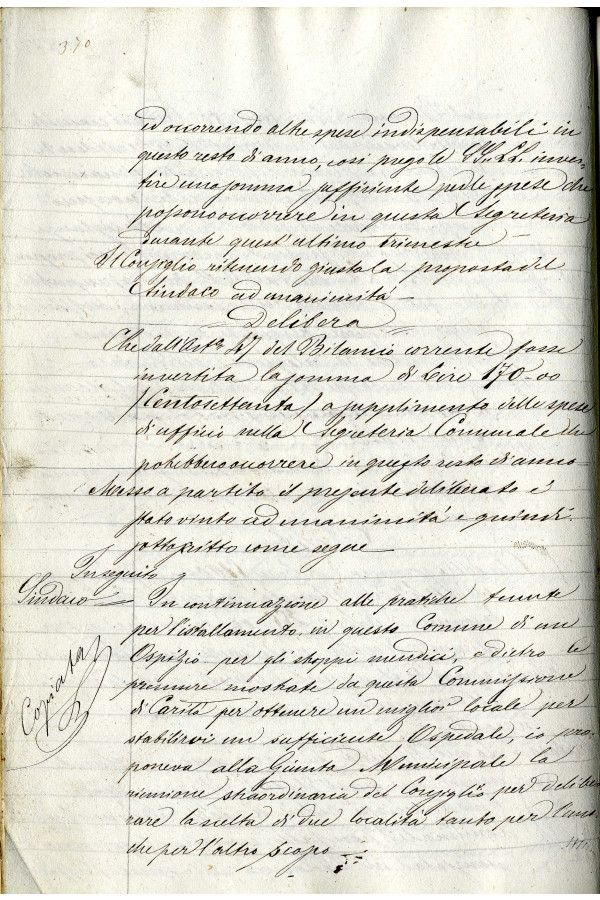 370
ed occorrendo altre spese indispensabili in
questo resto di anno, così prego le SS. LL. inver-
tire una somma sufficiente per le spese che
possono occorrere in questa Segreteria
durante quest'ultimo trimestre
Il Consiglio ritenendo giusta la proposta del
Sindaco ad unanimità
Delibera
Che dall'Art. 47 del Bilancio corrente fosse
invertita la somma di Lire 170-00
/Centosettanta/ a supplimento delle spese
di ufficio nella Segreteria Comunale che
potrebbero occorrere in questo resto di anno
Messo a partito il presente deliberato è
stato vinto ad unanimità e quindi
sottoscritto come segue
In seguito
Sindaco = In continuazione alle pratiche tenute
per l'istallamento in questo Comune di un
Ospizio per gli storpi mendici, e dietro le
premure mostrate da questa Commissione
di Carità per ottenere un miglior locale per
stabilirvi un sufficiente Ospedale, io pro-
poneva alla Giunta Municipale la
riunione straordinaria del Consiglio per delibe-
rare la scelta di due località tanto per l'uno
che per l'altro scopo
Copiata